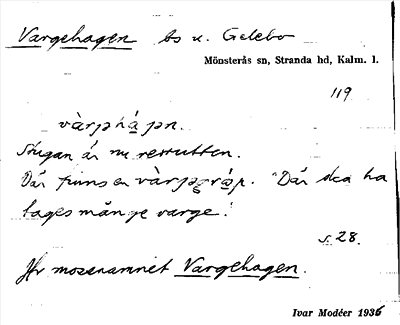 Vargehagen bs u. Gelebo
Mönsterås sn, Stranda hd, Kalm. l.
119
vàrjəhájən.
Stugan är nu
Där finns en vàrjəgráp. "Där ska ha
tages mån je varge".
s. 28.
Jfr mossenamnet Vargehagen.
Ivar Modéer 1936